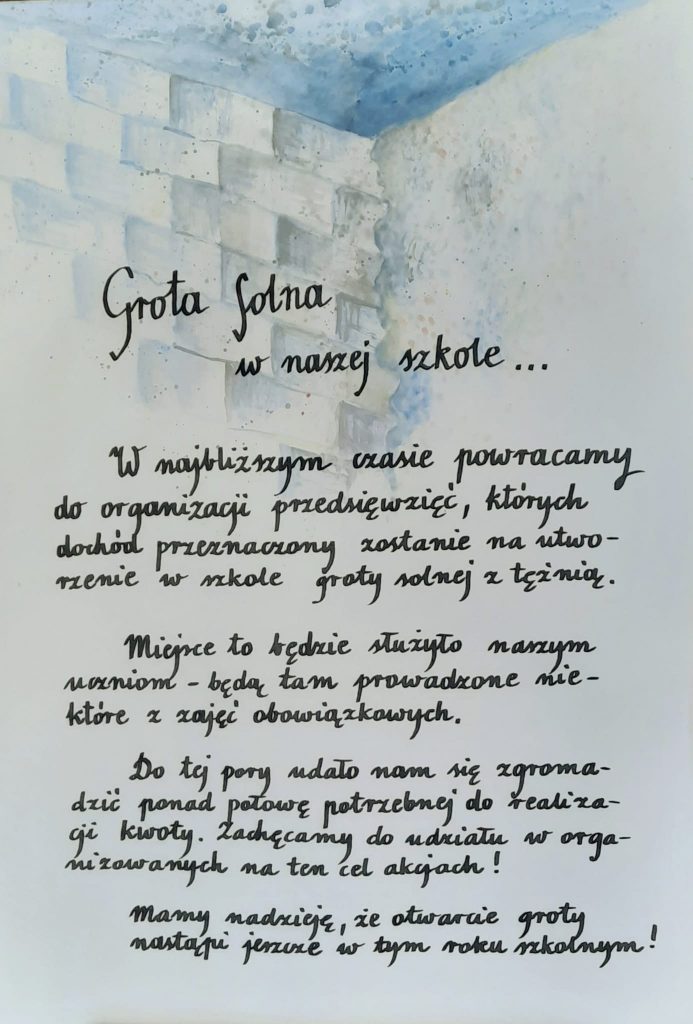 Grota solna
w naszej szkole...
W najbliższym czasie powracamy
do organizacji przedsięwzięć, których
dochód przeznaczony zostanie na utwo-
rzenie w szkole groty solnej z tężnią.
Miejsce to będzie służyło naszym
uczniom - będą tam prowadzone nie-
które z zajęć obowiązkowych.
Do tej pory udało nam się zgroma-
dzić ponad połowę potrzebnej do realiza-
cji kwoty. Zachęcamy do udziału w orga-
nizowanych na ten cel akcjach!
Mamy nadzieję, że otwarcie groty
nastąpi jeszcze w tym roku szkolnym!